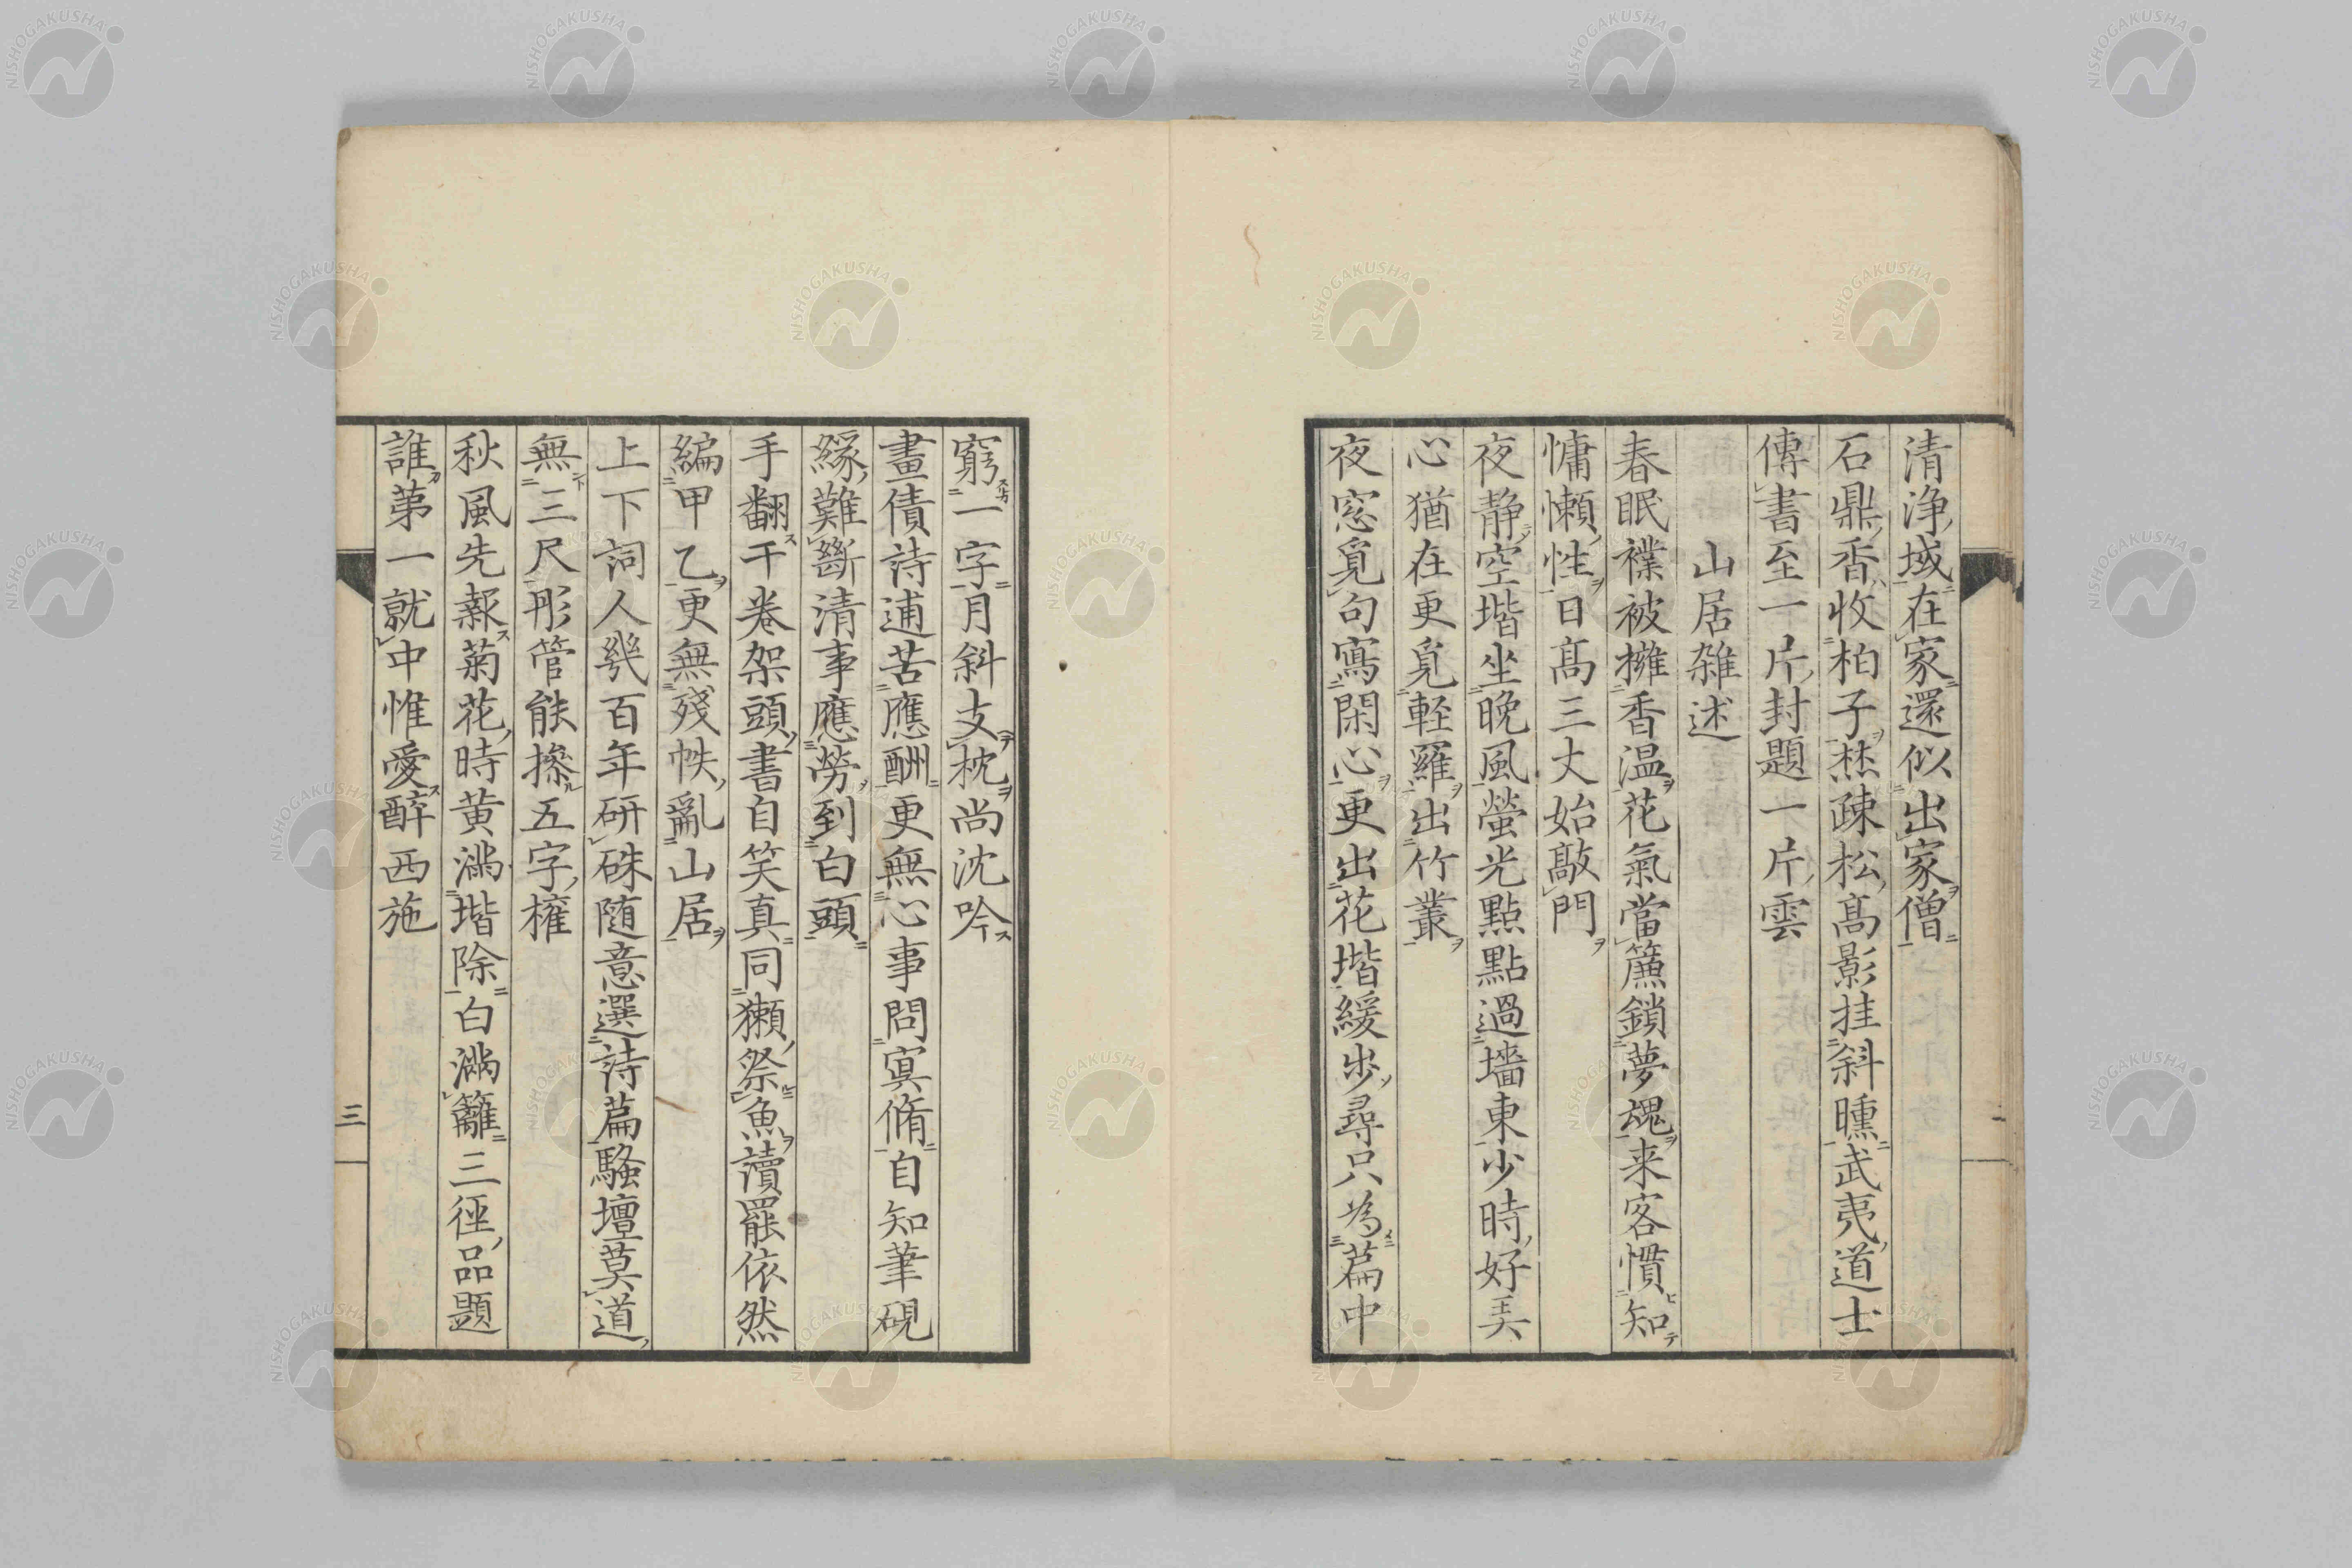 清浄域在家還似出家僧
石鼎香收柏子焚疎松髙影挂斜曛武夷道士
傳書至一片封題一片雲
山居雑述
春眠襍被擁香温花氣當簾鎖夢魂来客慣知
慵懶性日髙三丈始敲門
夜静空堦坐晚風螢光點點過墻東少時好叓
心猶在更覓軽羅出竹叢
夜窓覓句寫閑心更出花堦緩步尋只為篇中
窮一字月斜支枕尚沈吟
畫債詩逋苦應酬更無心事問㝠脩自知筆硯
緣難斷清事應勞到白頭
手翻千卷架頭書自笑真同獺祭魚讀罷依然
編甲乙更無殘帙亂山居
上下詞人幾百年研硃随意選詩篇騷壇莫道
無三尺彤管能操五字權
秋風先報菊花時黄滿堦除白滿籬三徑品題
誰第一就中惟愛醉西施
二
三